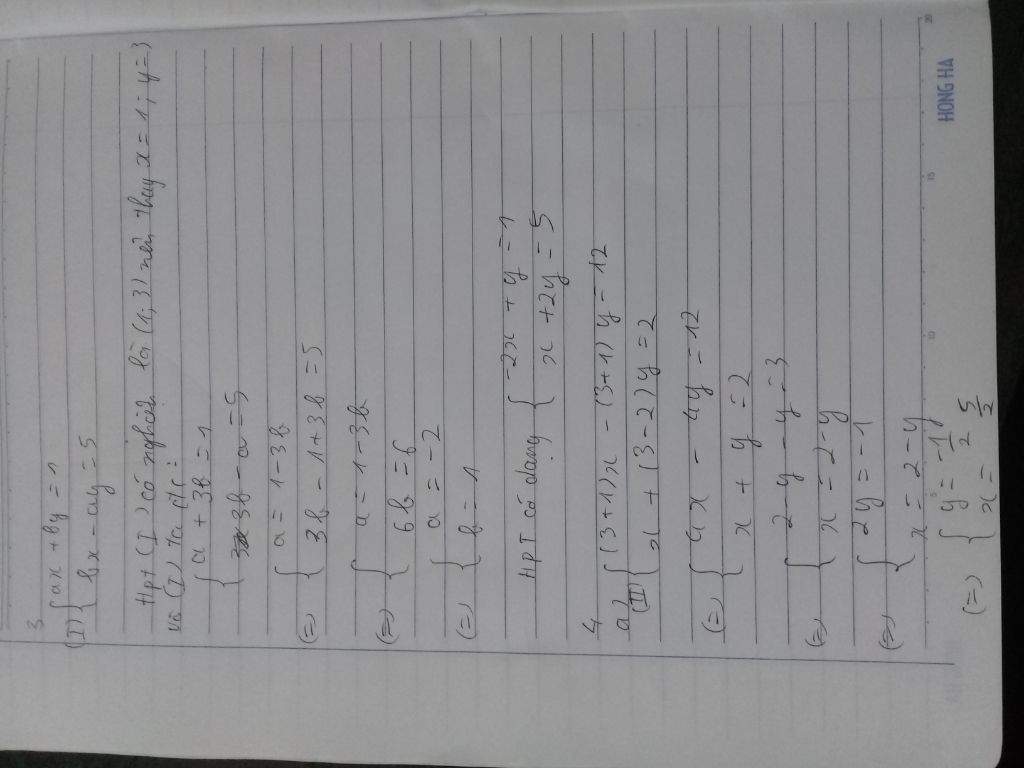 3
(I) { ax + by = 1
bx - ay = 5
Hpt (I) có nghiệm là (1; 3) nên thay x = 1; y = 3
và (I) ta đc:
{ a + 3b = 1
3b - a = 5
a = 1 - 3b
(=) { 3b - 1 + 3b = 5
(=) { a = 1 - 3b
6b = 6
(=) { a = -2
b = 1
HPT có dạng { -2x + y = 1
x + 2y = 5
4
a) (II) { (3+1)x - (3+1)y = 12
x + (3-2)y = 2
(=) { 4x - 4y = 12
x + y = 2
(=) { 2 - y - y = 3
x = 2 - y
(=) { 2y = -1
x = 2 - y
(=) { y = -1/2
x = 5/2
HONG HA
10
15
20